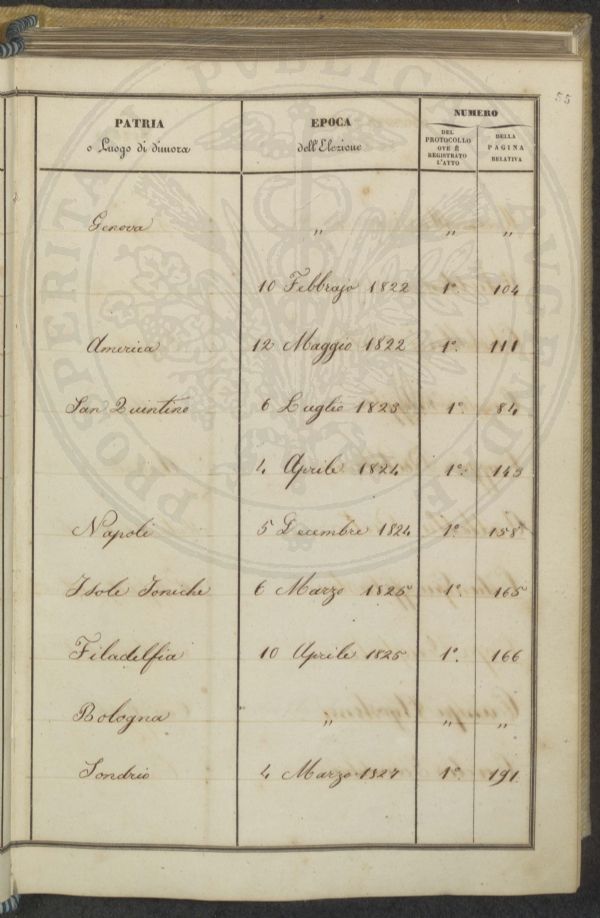 55
PATRIA
o Luogo di dimora
EPOCA
dell'Elezione
NUMERO
DEL
PROTOCOLLO
OVE È
REGISTRATO
L'ATTO
DELLA
PAGINA
RELATIVA
Genova " " "
10 Febbrajo 1822 1º. 104
America 12 Maggio 1822 1º. 111
San Quintino 6 Luglio 1823 1º. 84
4 Aprile 1824 1º. 143
Napoli 5 Decembre 1824 1º. 158
Isole Joniche 6 Marzo 1825 1º. 165
Filadelfia 10 Aprile 1825 1º. 166
Bologna " " "
Sondrio 4 Marzo 1827 1º. 191
PROSPERITATI PUBLICAE AUGENDAE